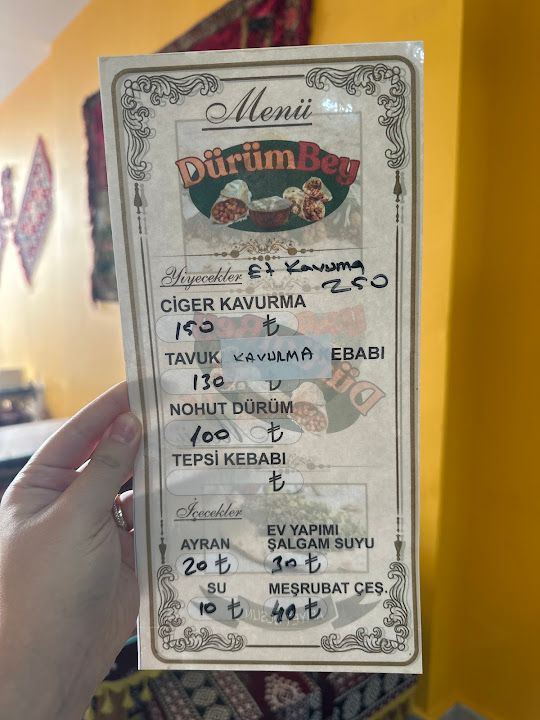 Menü
DürümBey
Yiyecekler Et Kavurma
250
CİGER KAVURMA
150 ₺
TAVUK KAVULMA EBABI
130 ₺
NOHUT DÜRÜM
100 ₺
TEPSİ KEBABI
₺
İçecekler
AYRAN
20 ₺
EV YAPIMI
ŞALGAM SUYU
30 ₺
SU
10 ₺
MEŞRUBAT ÇEŞ.
40 ₺